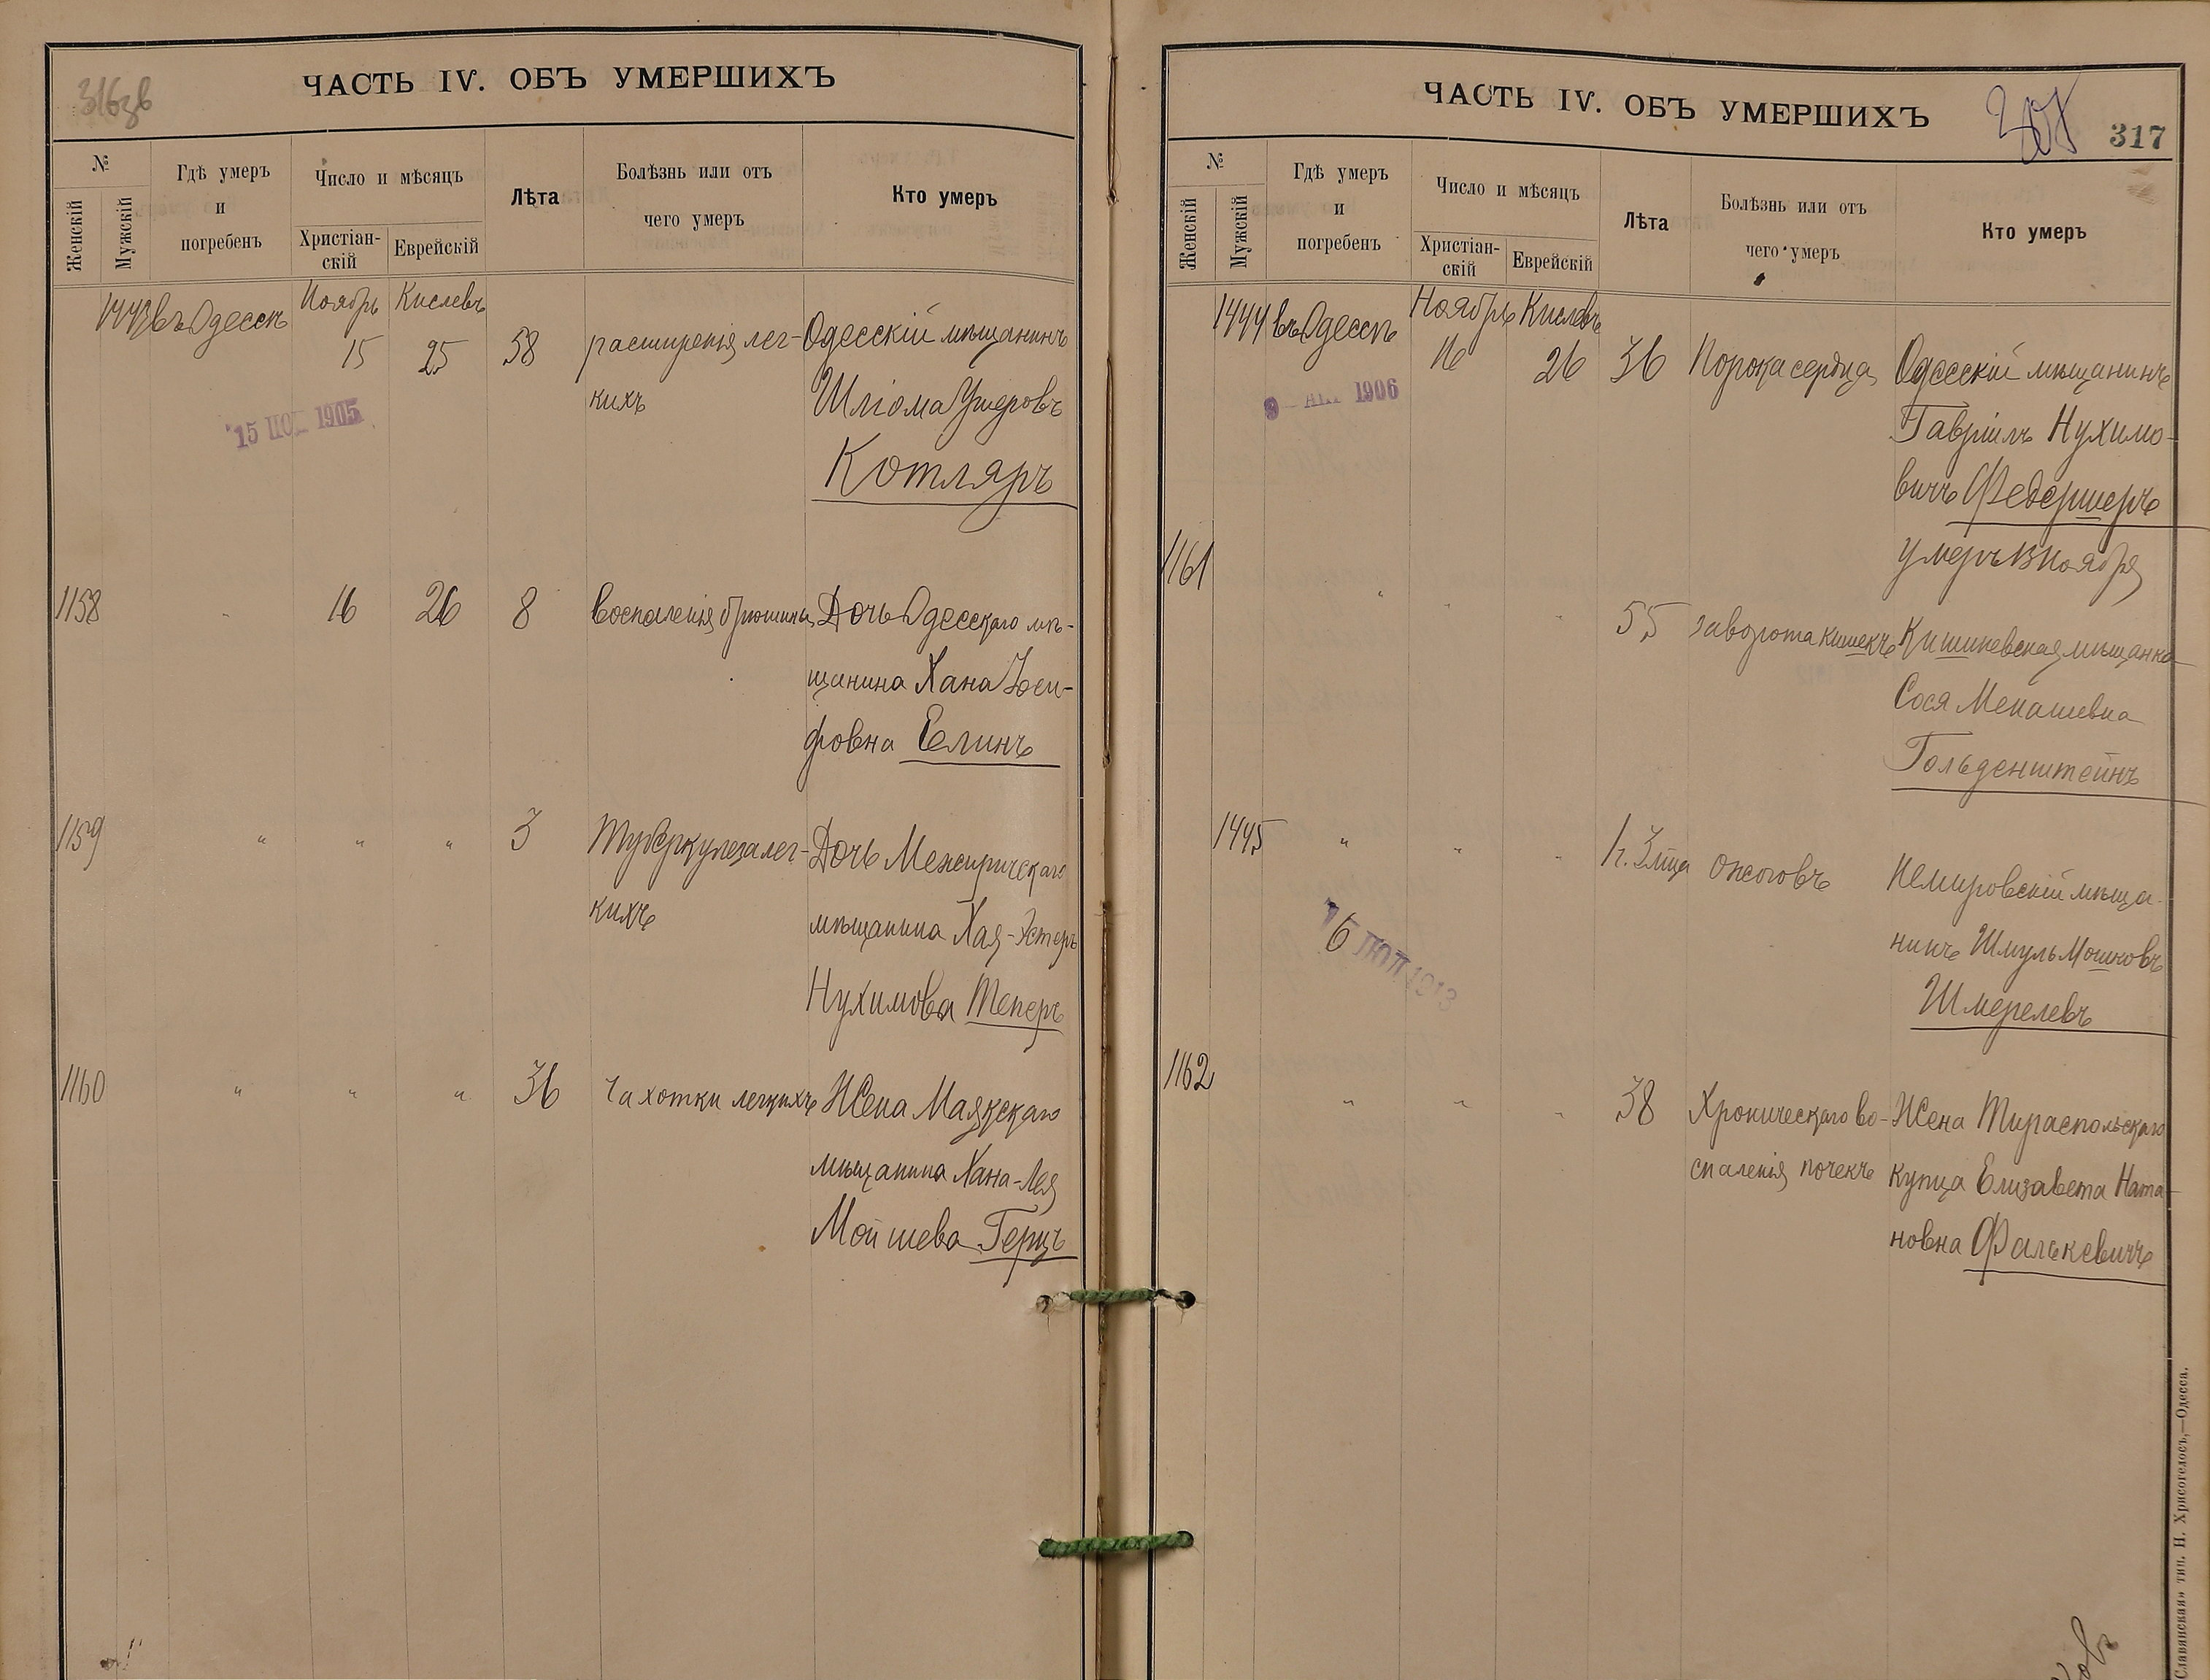 316зв
ЧАСТЬ IV. ОБЪ УМЕРШИХЪ
№
Женскій
Мужскій
Гдѣ умеръ
и
погребенъ
Число и мѣсяцъ
Христіан-
скій
Еврейскій
Лѣта
Болѣзнь или отъ
чего умеръ
Кто умеръ
1443 въ Одессѣ Ноябрь Кислевъ
15 25 58 расширенія лег- Одесскій мѣщанинъ
кихъ Шліома Ушеровъ
Котляръ
15 НОЯ 1905
1158 " 16 26 8 Воспаленія брюшины Дочь Одесскаго мѣ-
щанина Хана Іоси-
фовна Елинъ
1159 " " " 3 Туберкулеза лег- Дочь Межиричскаго
кихъ мѣщанина Хая-Эстеръ
Нухимова Теперъ
1160 " " " 36 Чахотки легкихъ Жена Маякскаго
мѣщанина Хана-Лея
Мойшева Герцъ
ЧАСТЬ IV. ОБЪ УМЕРШИХЪ
317
№
Женскій
Мужскій
Гдѣ умеръ
и
погребенъ
Число и мѣсяцъ
Христіан-
скій
Еврейскій
Лѣта
Болѣзнь или отъ
чего умеръ
Кто умеръ
1444 въ Одессѣ Ноябрь Кислевъ
16 26 36 Порока сердца Одесскій мѣщанинъ
Гавріилъ Нухимо-
вичъ Федершеръ
умеръ 13 Ноября
9 1906
1161 " " " 55 заворота кишекъ Кишиневская мѣщанка
Сося Менашевна
Гольденштейнъ
1445 " " " 1 г. 3 мца ожоговъ Немировскій мѣща-
нинъ Шмуль Мошковъ
Шмерелевъ
6 ІЮЛ 1913
1162 " " " 38 Хроническаго во- Жена Тираспольскаго
спаленія почекъ купца Елизавета Ната-
новна Фалькевичъ
Славянская» тип. Н. Хрисогелосъ,—Одесса.